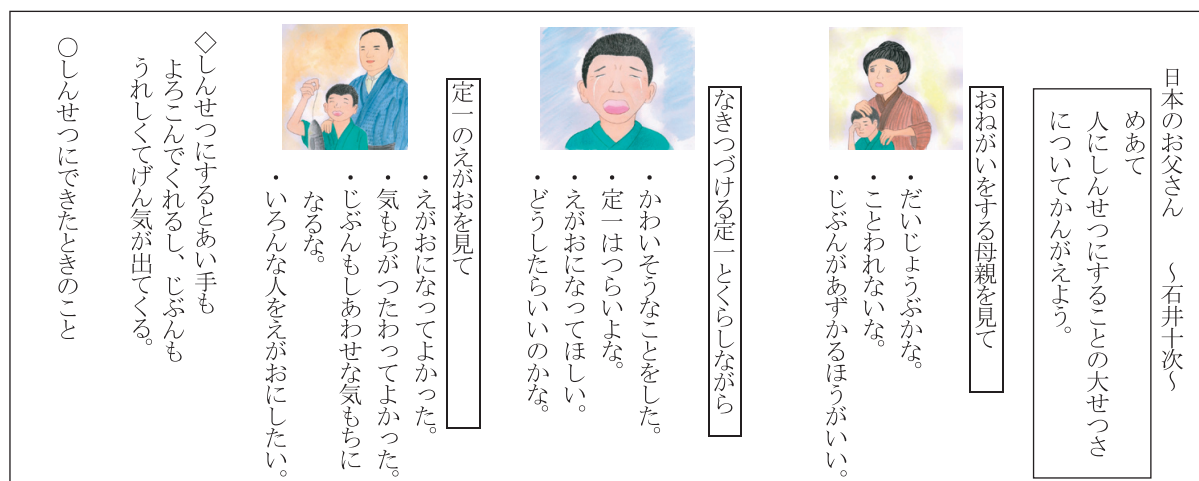 日本のお父さん　　～石井十次～
めあて
人にしんせつにすることの大せつさ
についてかんがえよう。
おねがいをする母親を見て
・だいじょうぶかな。
・ことわれないな。
・じぶんがあずかるほうがいい。
なきつづける定一とくらしながら
・かわいそうなことをした。
・定一はつらいよな。
・えがおになってほしい。
・どうしたらいいのかな。
定一のえがおを見て
・えがおになってよかった。
・気もちがつたわってよかった。
・じぶんもしあわせな気もちに
なるな。
・いろんな人をえがおにしたい。
◇しんせつにするとあい手も
よろこんでくれるし、じぶんも
うれしくてげん気が出てくる。
○しんせつにできたときのこと